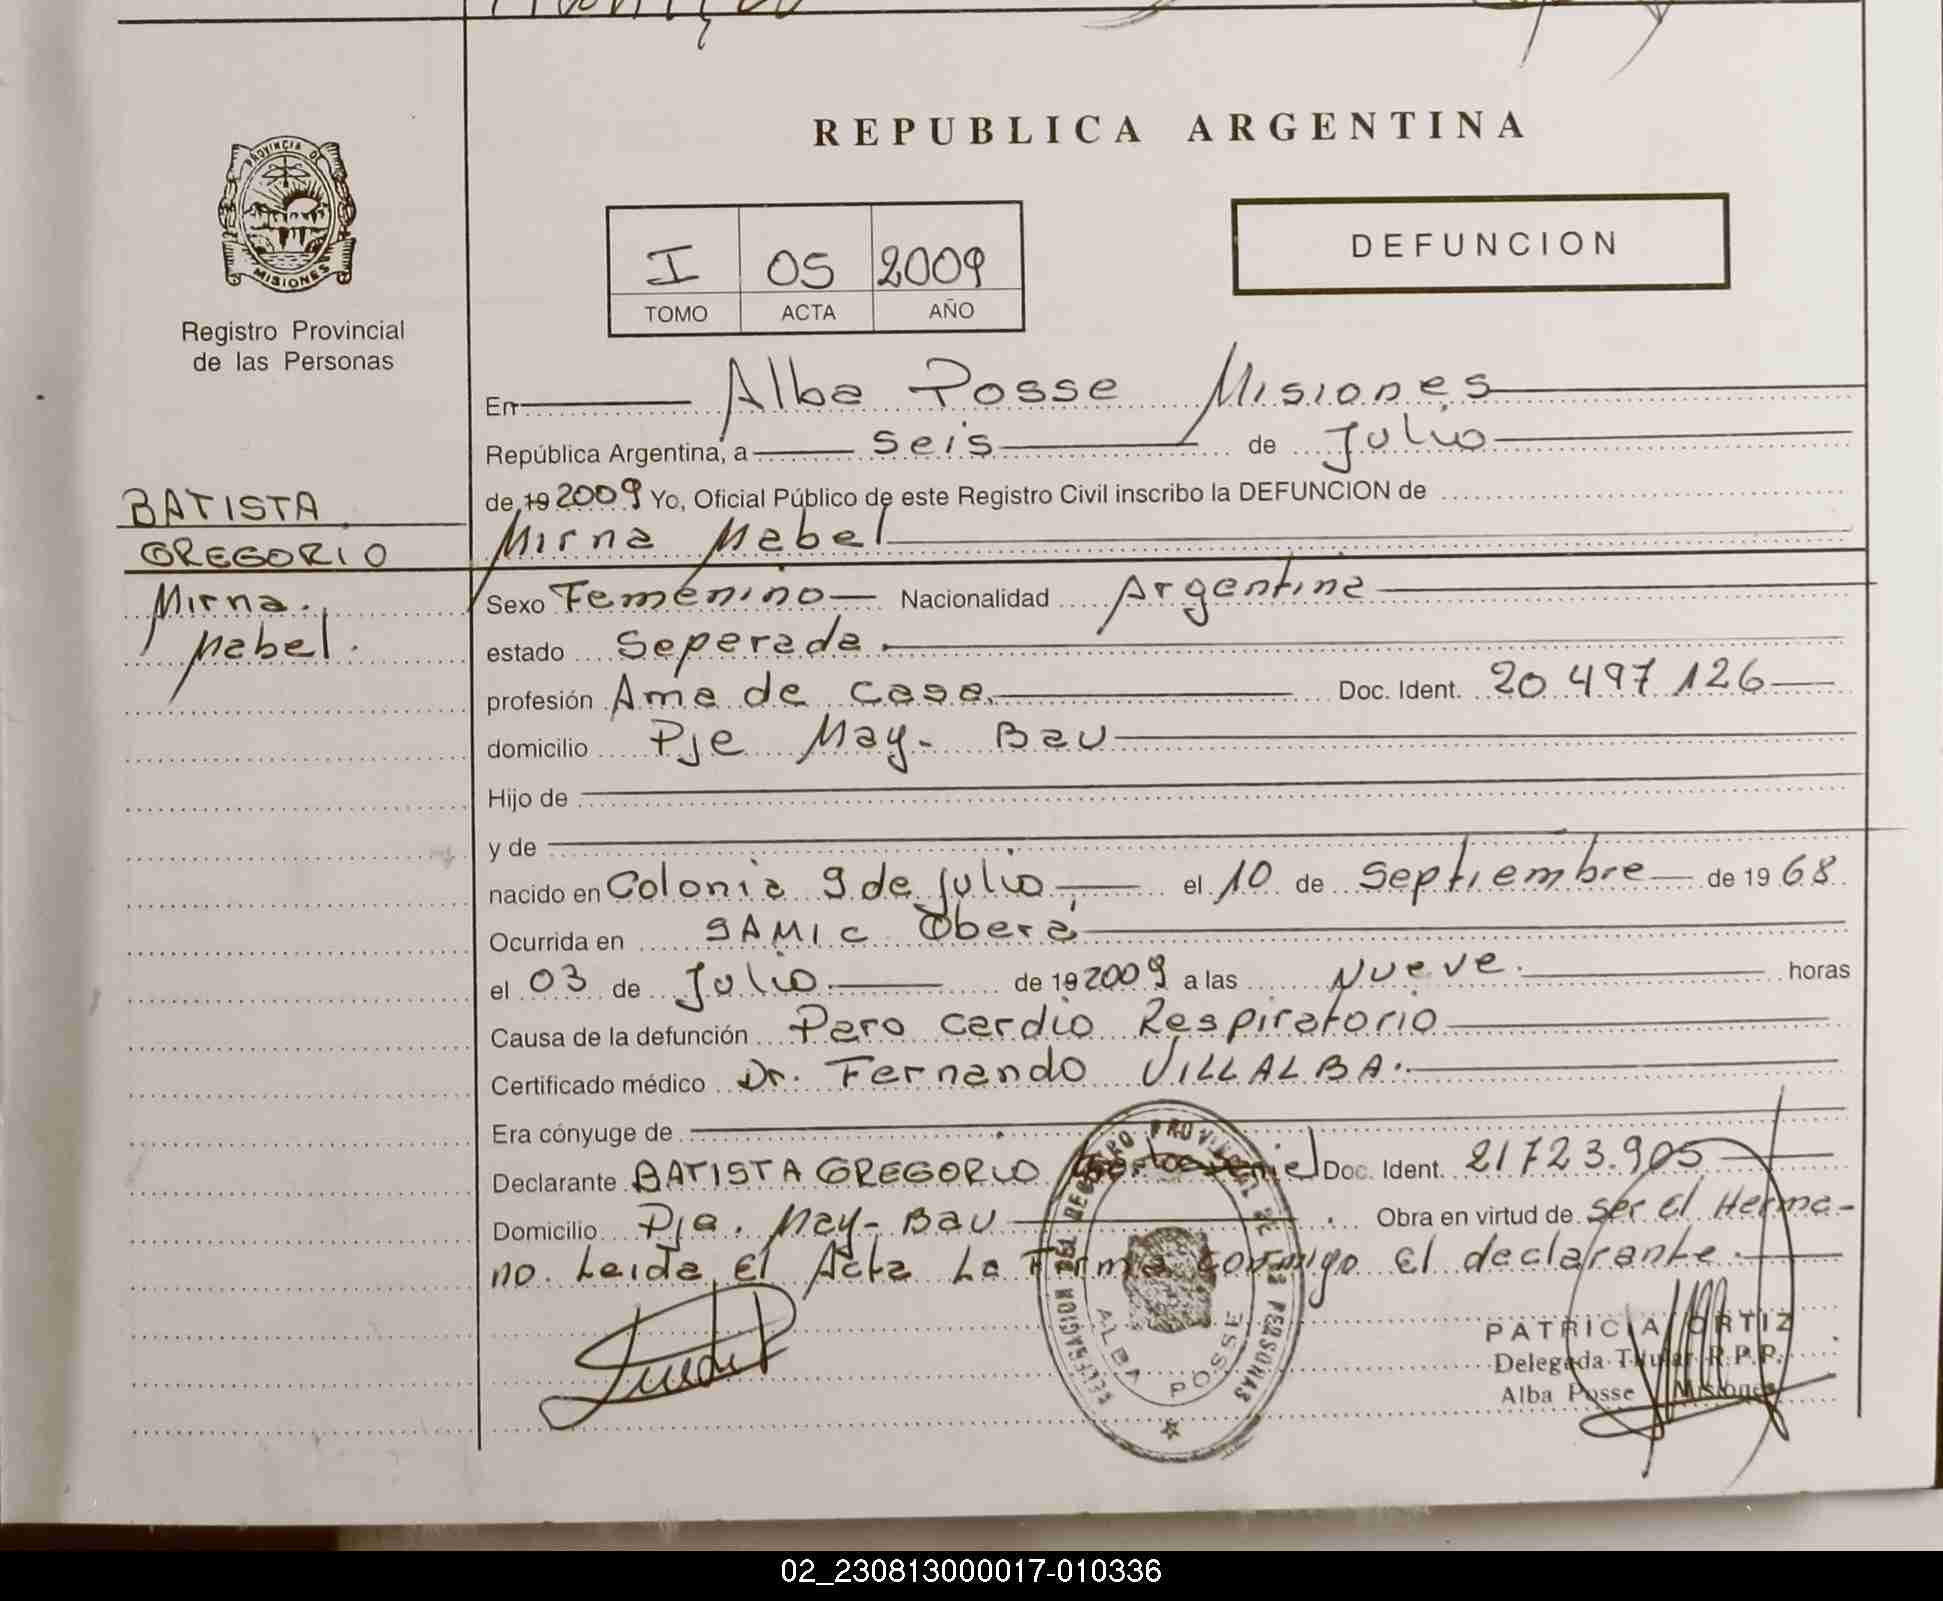 PROVINCIA DE
MISIONES
Registro Provincial
de las Personas
REPUBLICA ARGENTINA
I 05 2009
TOMO ACTA AÑO
DEFUNCION
En Alba Posse Misiones
República Argentina, a seis de Julio
de 19 2009 Yo, Oficial Público de este Registro Civil inscribo la DEFUNCION de
Mirna Mabel
BATISTA
GREGORIO
Mirna.
Mabel.
Sexo Femenino Nacionalidad Argentina
estado Seperada
profesión Ama de casa. Doc. Ident. 20 497 126
domicilio Pje May-Bau
Hijo de
y de
nacido en Colonia 9 de Julio el 10 de Septiembre de 19 68
Ocurrida en SAMIC Oberá
el 03 de Julio de 19 2009 a las Nueve. horas
Causa de la defunción Paro cardio Respiratorio
Certificado médico Dr. Fernando VILLALBA.
Era cónyuge de
Declarante BATISTA GREGORIO Doc. Ident. 21723.905
Domicilio Pje. May-Bau Obra en virtud de ser el Herma-
no. Leida El Acta La Firma conmigo El declarante.
DELEGACION DEL REGISTRO PROVINCIAL DE LAS PERSONAS
ALBA POSSE
PATRICIA ORTIZ
Delegada Titular R.P.P.
Alba Posse Misiones
02_230813000017-010336